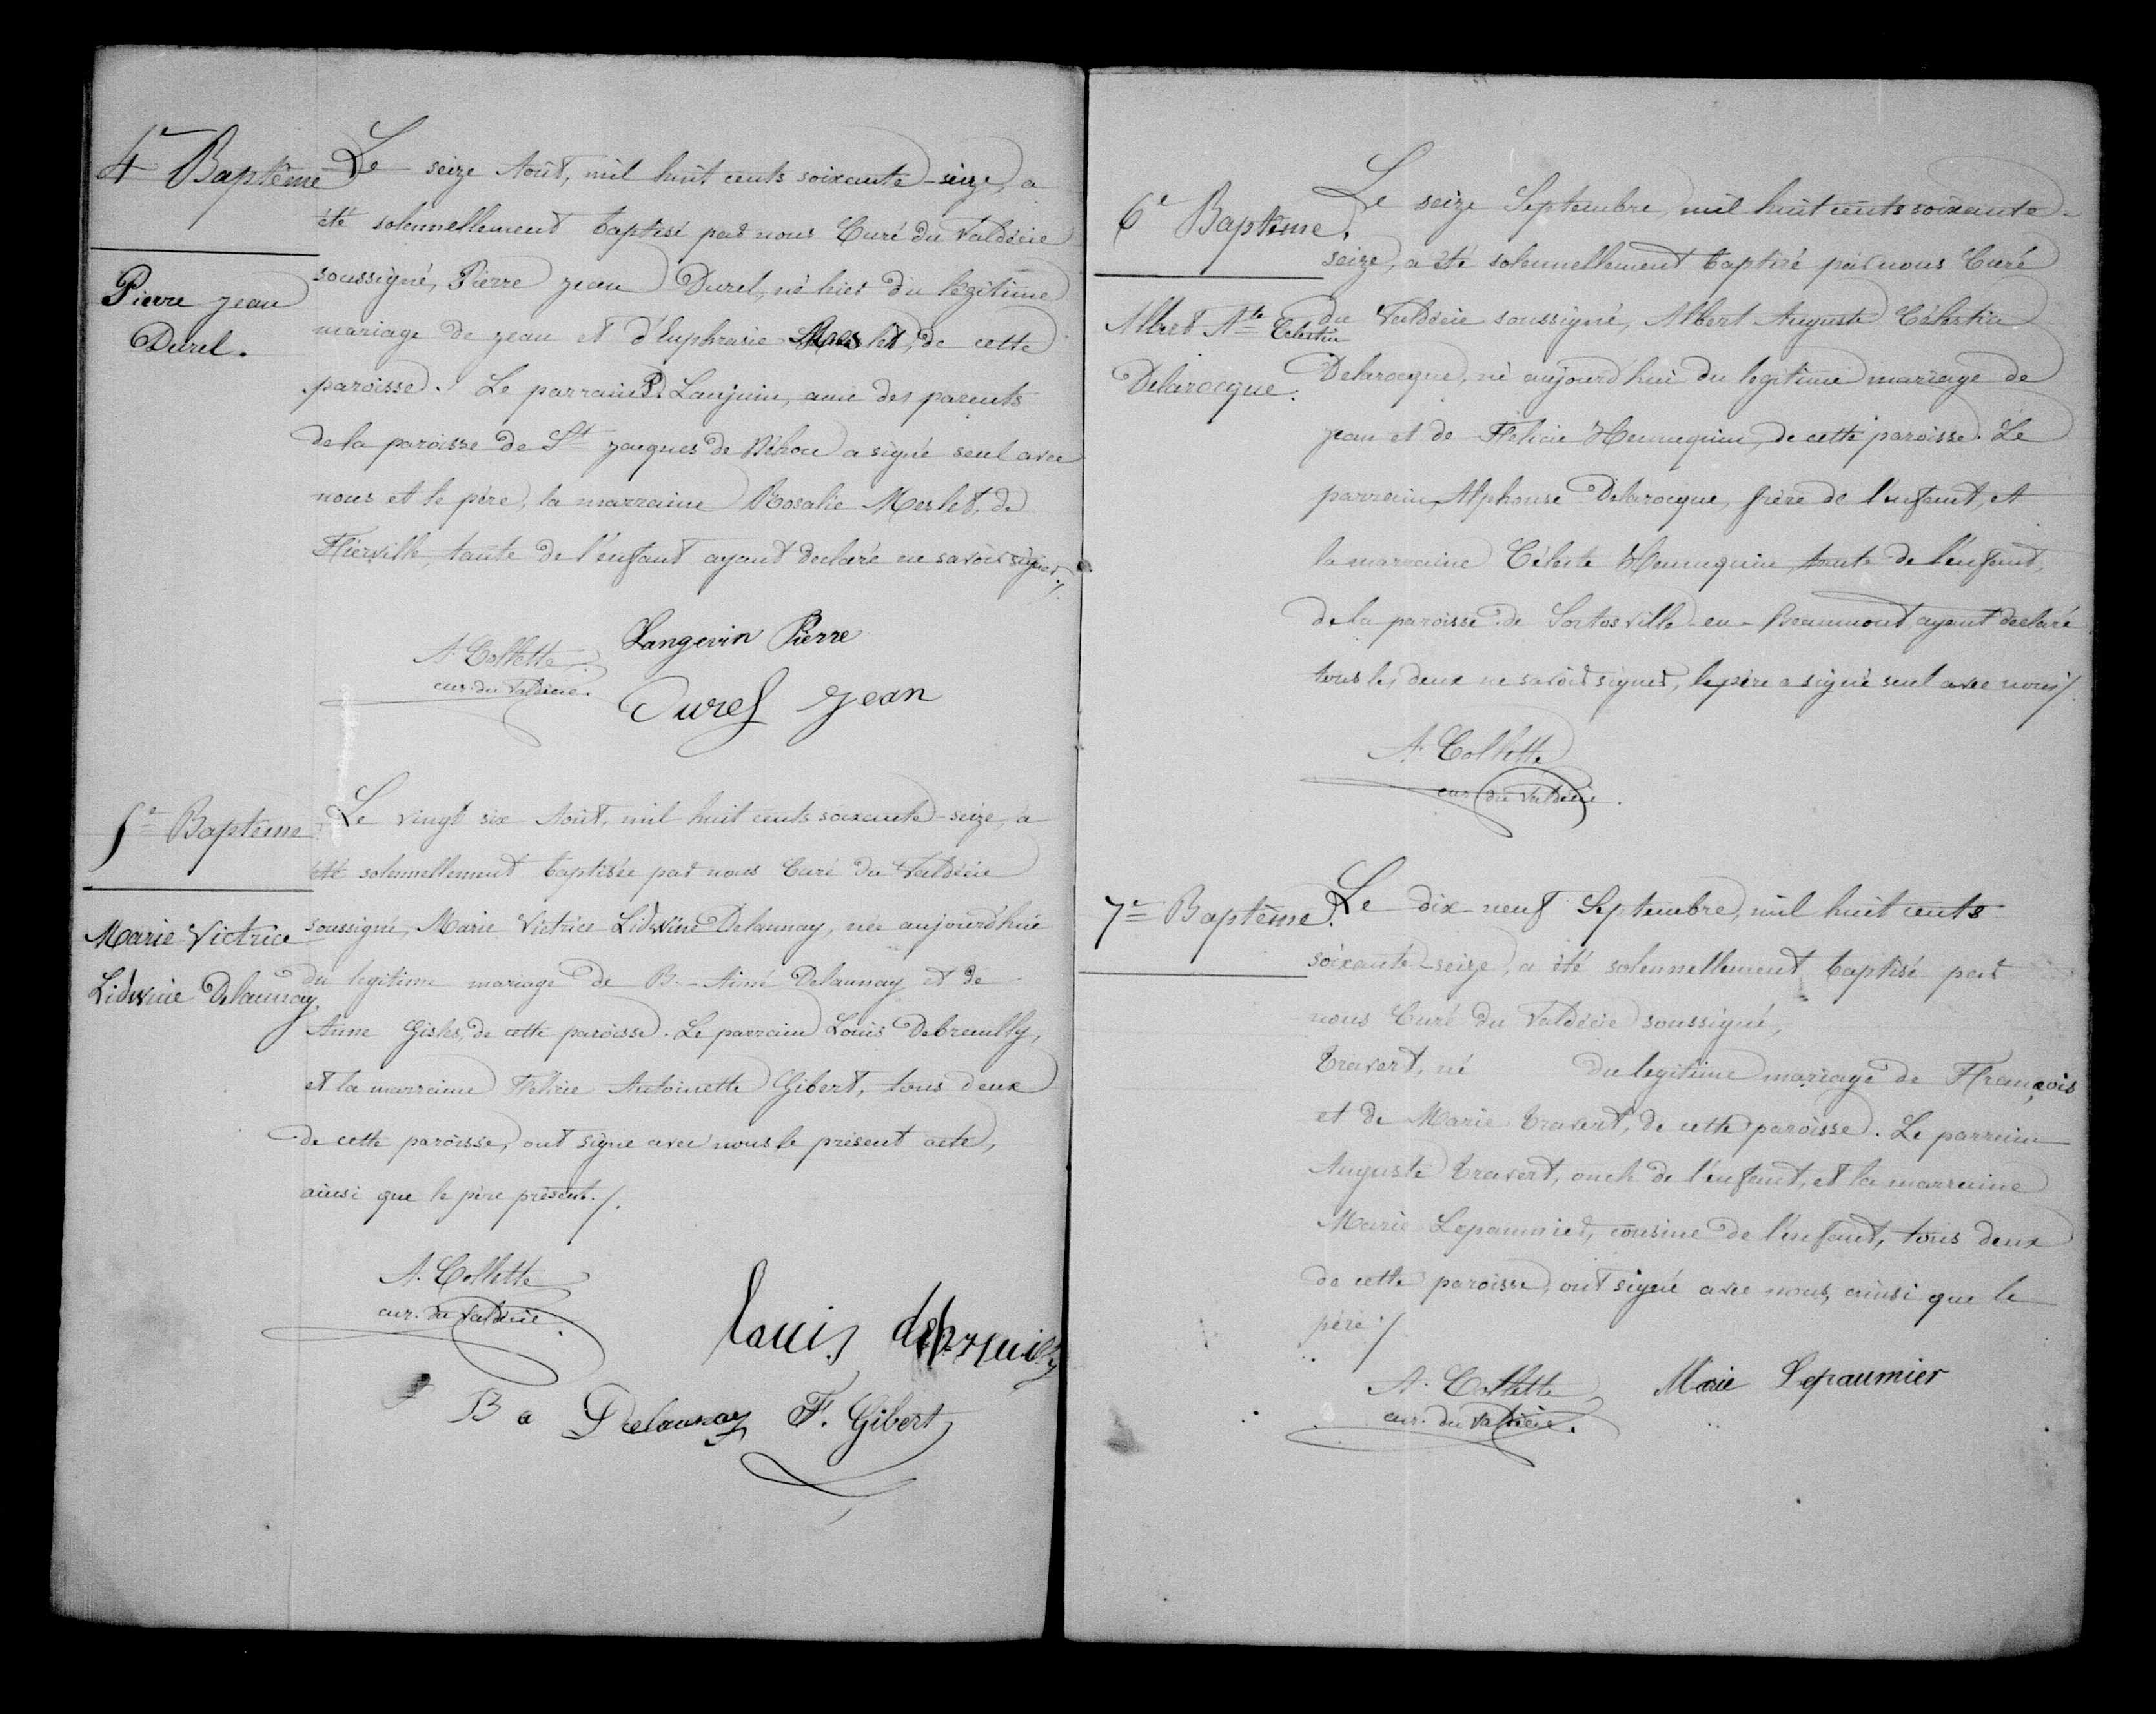 4e Baptême
Pierre Jean
Durel.
Le seize Août, mil huit cents soixante-seize, a
été solennellement baptisé par nous Curé du Valdécie
soussigné, Pierre Jean Durel, né hier du legitime
mariage de Jean et d'Euphrasie Meslet, de cette
paroisse. Le parrain P. Lanjuin, ami des parents
de la paroisse de St Jacques de Néhou a signé seul avec
nous et le père, la marraine Rosalie Meslet, de
Fierville, tante de l'enfant ayant declaré ne savoir signer ./.
Langevin Pierre
A. Collette
cur. du Valdécie.
Durel Jean
5e Baptême
Marie Victrice
Lidwine Delaunay
Le vingt six Août, mil huit cents soixante-seize, a
été solennellement baptisée par nous Curé du Valdécie
soussigné, Marie Victrice Lidwine Delaunay, née aujourd'hui
du legitime mariage de B.-Aimé Delaunay et de
Anne Gisles, de cette paroisse. Le parrain Louis Debreuilly,
et la marraine Félicie Antoinette Gibert, tous deux
de cette paroisse, ont signé avec nous le présent acte,
ainsi que le père présent. /.
A. Collette
cur. du Valdécie.
Louis
B a Delaunay F. Gibert
6e Baptême.
Albert Aste Célestin
Delarocque.
Le seize Septembre, mil huit cents soixante-
seize, a été solennellement baptisé par nous Curé
du Valdécie soussigné, Albert Auguste Célestin
Delarocque, né aujourd'hui du legitime mariage de
Jean et de Félicie Hennequin, de cette paroisse. Le
parrain, Alphonse Delarocque, frère de l'enfant, et
la marraine Céleste Hennequin, tante de l'enfant,
de la paroisse de Sortosville-en-Beaumont ayant declaré
tous les deux ne savoir signer, le père a signé seul avec nous /.
A. Collette
cur. du Valdécie.
7e Baptême.
Le dix-neuf Septembre, mil huit cents
soixante-seize, a été solennellement baptisé par
nous Curé du Valdécie soussigné,
Travert, né du legitime mariage de François
et de Marie Travert, de cette paroisse. Le parrain
Auguste Travert, oncle de l'enfant, et la marraine
Marie Lepaumier, cousine de l'enfant, tous deux
de cette paroisse, ont signé avec nous, ainsi que le
père /.
A. Collette
cur. du Valdécie.
Marie Lepaumier